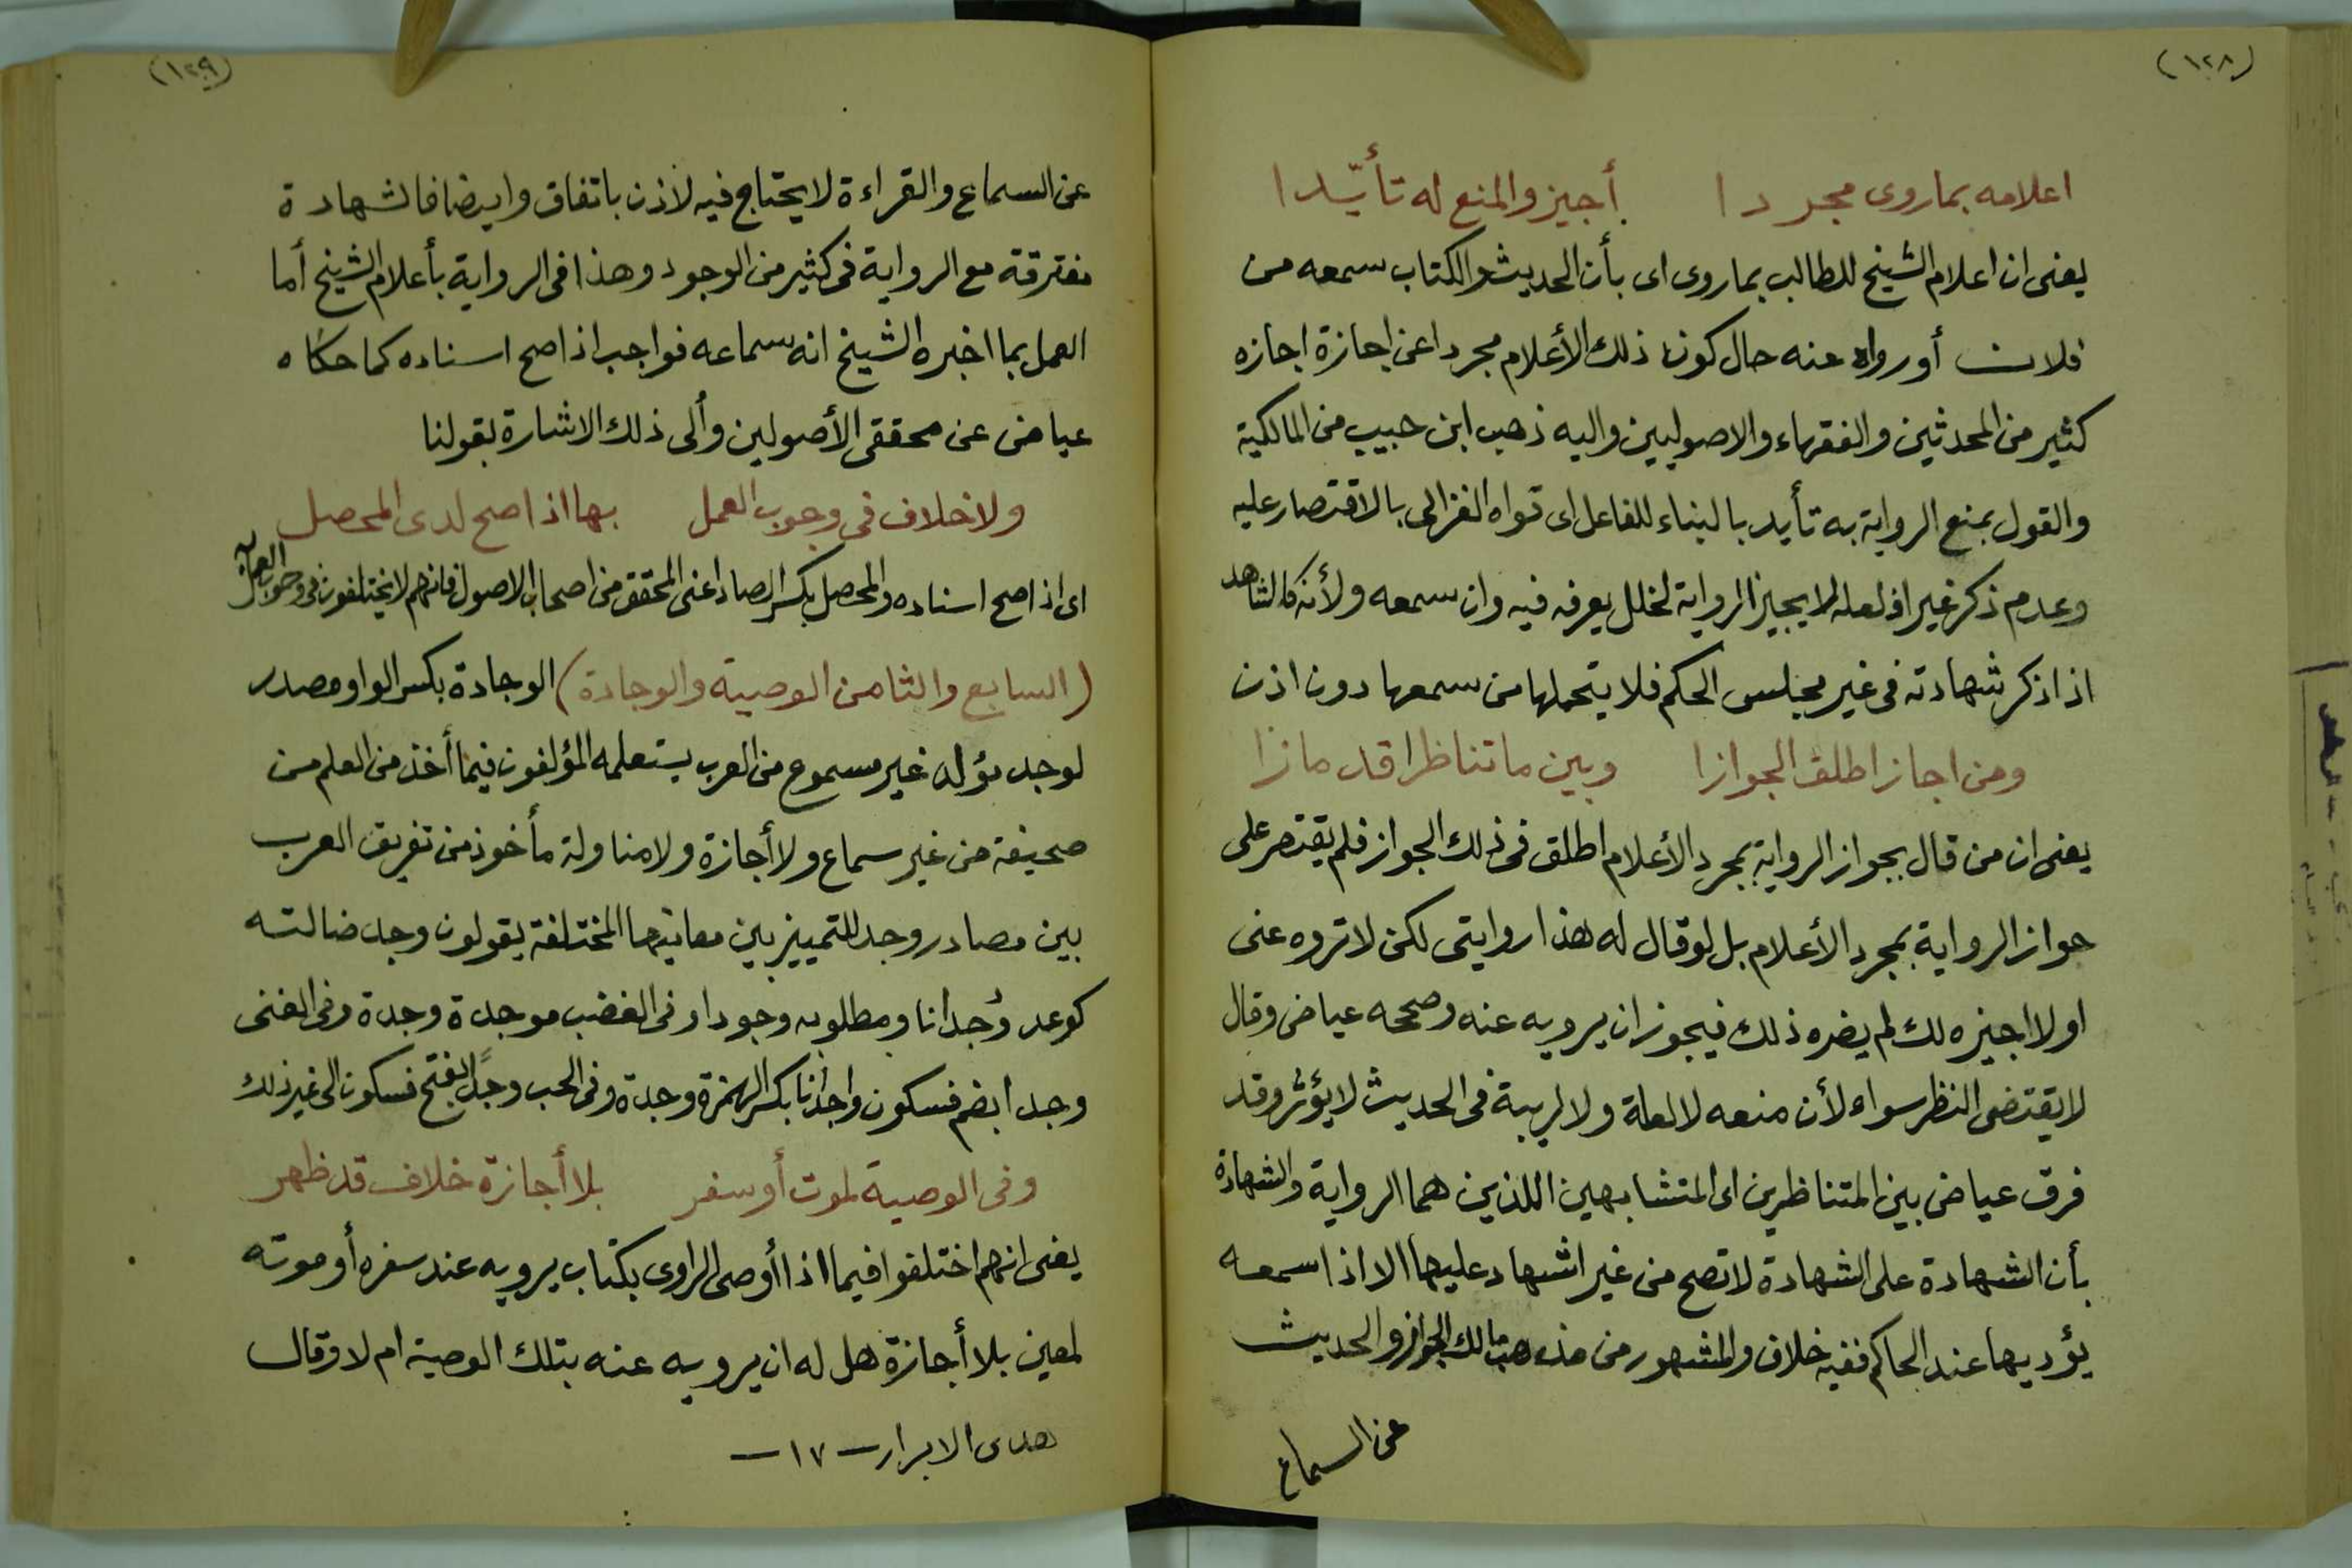 (١٢٨)
اعلامه بما روى مجردا أجيز والمنع له تأيّدا
يعنى ان اعلام الشيخ للطالب بما روى اى بأن الحديث والكتاب سمعه من
فلان أورواه عنه حال كون ذلك الأعلام مجردا عن اجازة اجازه
كثير من المحدثين والفقهاء والاصوليين واليه ذهب ابن حبيب من المالكية
والقول بمنع الرواية به تأيد بالبناء للفاعل اى قواه الغزالى بالاقتصار عليه
وعدم ذكر غير اذ لعله لا يجيز الرواية لخلل يعرفه فيه وان سمعه ولأنه كالشاهد
اذا ذكر شهادته فى غير مجلس الحكم فلا يتحملها من سمعها دون اذن
ومن اجاز اطلق الجوازا وبين ما تناظرا قد مازا
يعنى ان من قال بجواز الرواية بمجرد الأعلام اطلق فى ذلك الجواز فلم يقتصر على
جواز الرواية بمجرد الأعلام بل لو قال له هذا روايتى لكن لا تروه عنى
او لا اجيزه لك لم يضره ذلك فيجوز ان يرويه عنه وصححه عياض وقال
لا يقتضى النظر سواه لأن منعه لا لعلة ولا لريبة فى الحديث لا يؤثر وقد
فرق عياض بين المتناظرين اى المتشابهين اللذين هما الرواية والشهادة
بأن الشهادة على الشهادة لا تصح من غير اشهاد عليها الا اذا سمعه
يؤديها عند الحاكم ففيه خلاف والمشهور من مذهب مالك الجواز والحديث
عن السماع
(١٢٩)
عن السماع والقراءة لا يحتاج فيه لاذن باتفاق وايضا فالشهادة
مفترقة مع الرواية فى كثير من الوجود وهذا فى الرواية بأعلام الشيخ أما
العمل بما اخبره الشيخ انه سماعه فواجب اذا صح اسناده كما حكاه
عياض عن محققى الأصولين وألى ذلك الاشارة بقولنا
ولا خلاف فى وجوب العمل بها اذا صح لدى المحصل
اى اذا صح اسناده والمحصل بكسر الصاد اعنى المحقق من اصحاب الاصول فانهم لا يختلفون فى وجوب العمل به
(السابع والثامن الوصية والوجادة) الوجادة بكسر الواو مصدر
لوجد مؤلد غير مسموع من العرب يستعلمه المؤلفون فيما أخذ من العلم من
صحيفة من غير سماع ولا أجازة ولا مناولة مأخوذ من تفريق العرب
بين مصادر وجد للتمييز بين معانيها المختلفة يقولون وجد ضالته
كوعد وُجدانا ومطلوبه وجودا وفى الغضب موجدة وجدة وفى الغنى
وجدا بضم فسكون واجدانا بكسر الهمزة وجدة وفى الحب وجدًا بفتح فسكون الى غير ذلك
وفى الوصية لموت أو سفر بلا أجازة خلاف قد ظهر
يعنى انهم اختلفوا فيما اذا أوصى الراوى بكتاب يرويه عند سفره أو موته
لمعين بلا أجازة هل له ان يرويه عنه بتلك الوصية ام لا وقال
هدى الابرار — ١٧ —